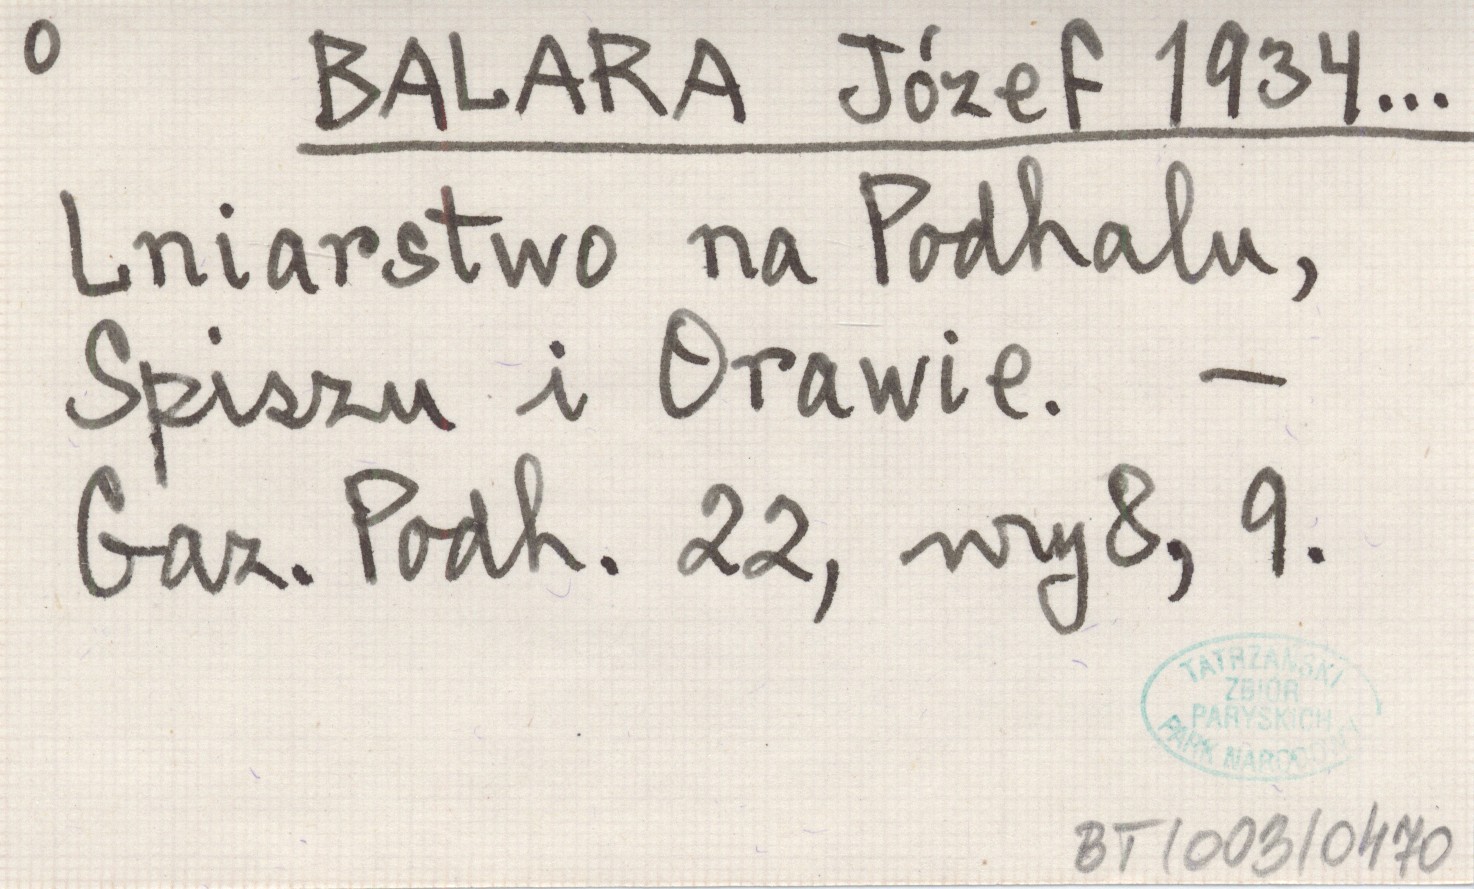 o BALARA Józef 1934...
Lniarstwo na Podhalu,
Spiszu i Orawie. –
Gaz. Podh. 22, nry 8, 9.
TATRZAŃSKI
ZBIÓR
PARYSKICH
PARK NARODOWY
BT/003/0470